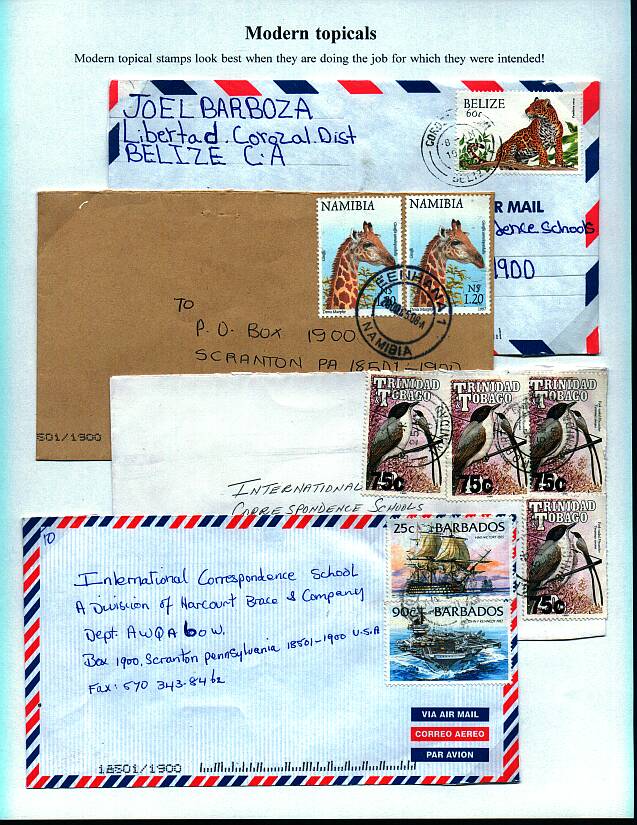 Modern topicals
Modern topical stamps look best when they are doing the job for which they were intended!
JOEL BARBOZA
Libertad. Corozal. Dist
BELIZE C.A
BELIZE
60¢
BELIZE
R MAIL
dence Schools
1900
NAMIBIA
NAMIBIA
N$
1.20
N$
1.20
Dema Murphy
1997
EENHANA 1
NAMIBIA
TO
P.O. BOX 1900
SCRANTON PA 18501-1900
501/1900
TRINIDAD
& TOBAGO
75c
TRINIDAD
& TOBAGO
75c
TRINIDAD
& TOBAGO
75c
TRINIDAD
& TOBAGO
75c
INTERNATIONAL
CORRESPONDENCE SCHOOLS
TO
International Correspondence School
A Division of Harcourt Brace & Company
Dept. AWQA60W.
Box 1900, Scranton pennsylvania 18501-1900 U.S.A
Fax: 570 343-8462
25c BARBADOS
HMS VICTORY 1805
90c BARBADOS
JOHN F KENNEDY 1982
VIA AIR MAIL
CORREO AEREO
PAR AVION
18501/1900